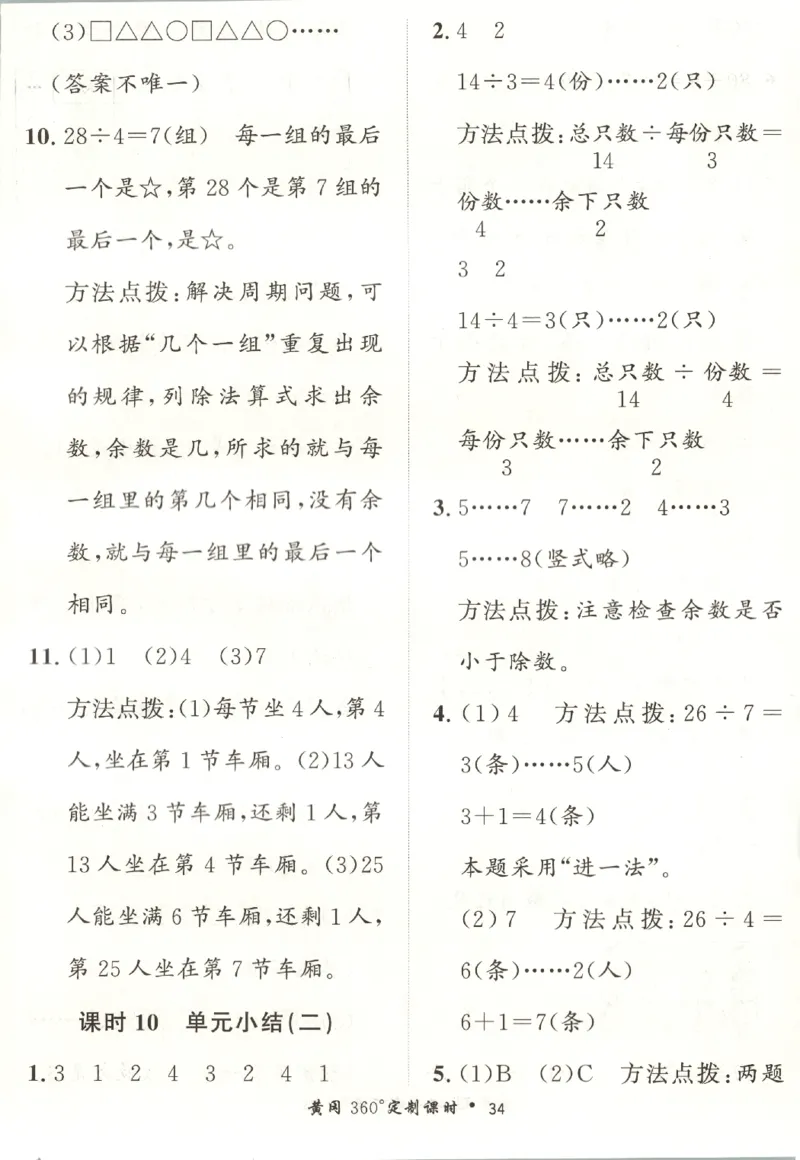 (3)□△△○□△△○……
(答案不唯一)
10. 28÷4=7(组) 每一组的最后
一个是☆,第 28 个是第 7 组的
最后一个,是☆。
方法点拨:解决周期问题,可
以根据“几个一组”重复出现
的规律,列除法算式求出余
数,余数是几,所求的就与每
一组里的第几个相同,没有余
数,就与每一组里的最后一个
相同。
11. (1)1 (2)4 (3)7
方法点拨:(1)每节坐 4 人,第 4
人,坐在第 1 节车厢。(2)13 人
能坐满 3 节车厢,还剩 1 人,第
13 人坐在第 4 节车厢。(3)25
人能坐满 6 节车厢,还剩 1 人,
第 25 人坐在第 7 节车厢。
课时 10 单元小结(二)
1. 3 1 2 4 3 2 4 1
2. 4 2
14÷3=4(份)……2(只)
方法点拨:总只数÷每份只数=
14 3
份数……余下只数
4 2
3 2
14÷4=3(只)……2(只)
方法点拨:总只数÷份数=
14 4
每份只数……余下只数
3 2
3. 5……7 7……2 4……3
5……8(竖式略)
方法点拨:注意检查余数是否
小于除数。
4. (1)4 方法点拨:26÷7=
3(条)……5(人)
3+1=4(条)
本题采用“进一法”。
(2)7 方法点拨:26÷4=
6(条)……2(人)
6+1=7(条)
5. (1)B (2)C 方法点拨:两题
黄冈 360°定制课时 • 34